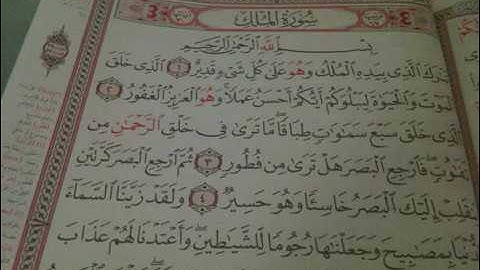 سُورَةُ المُلْكِ
بِسْمِ اللَّهِ الرَّحْمَٰنِ الرَّحِيمِ
تَبَٰرَكَ الَّذِي بِيَدِهِ الْمُلْكُ وَهُوَ عَلَىٰ كُلِّ شَيْءٍ قَدِيرٌ ١ الَّذِي خَلَقَ
الْمَوْتَ وَالْحَيَوٰةَ لِيَبْلُوَكُمْ أَيُّكُمْ أَحْسَنُ عَمَلًا وَهُوَ الْعَزِيزُ الْغَفُورُ ٢
الَّذِي خَلَقَ سَبْعَ سَمَٰوَٰتٍ طِبَاقًا مَّا تَرَىٰ فِي خَلْقِ الرَّحْمَٰنِ مِن
تَفَٰوُتٍ فَارْجِعِ الْبَصَرَ هَلْ تَرَىٰ مِن فُطُورٍ ٣ ثُمَّ ارْجِعِ الْبَصَرَ كَرَّتَيْنِ
يَنقَلِبْ إِلَيْكَ الْبَصَرُ خَاسِئًا وَهُوَ حَسِيرٌ ٤ وَلَقَدْ زَيَّنَّا السَّمَاءَ
الدُّنْيَا بِمَصَٰبِيحَ وَجَعَلْنَٰهَا رُجُومًا لِّلشَّيَٰطِينِ وَأَعْتَدْنَا لَهُمْ عَذَابَ